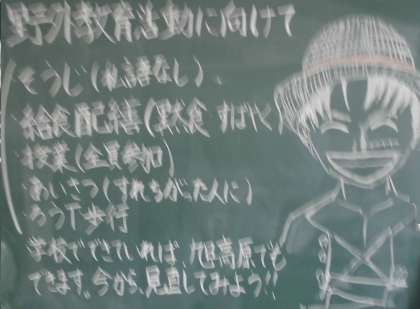 野外教育活動に向けて
・そうじ(私語なし)、
・給食配膳(黙食・すばやく)
・授業(全員参加)
・あいさつ(すれちがった人に)
・ろう下歩行
学校でできていれば、旭高原でも
できます。今から、見直してみよう!!